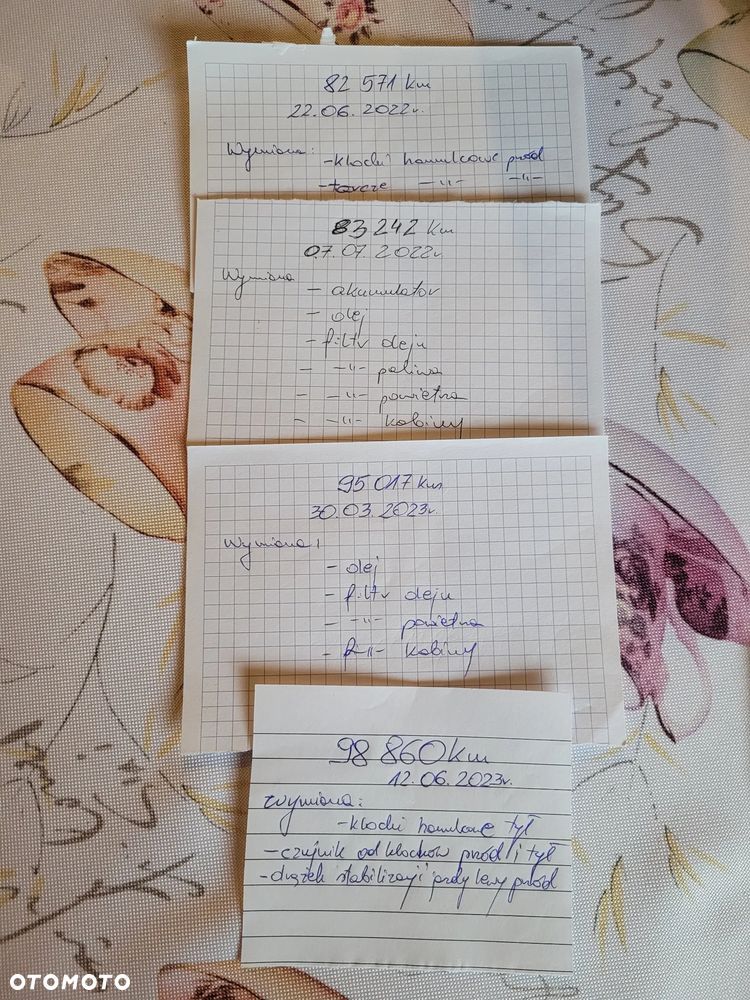 82 571 km
22.06.2022r.
Wymiana:
- klocki hamulcowe przód
- tarcze -"- -"-
83 242 km
07.07.2022r.
Wymiana
- akumulator
- olej
- filtr oleju
- -"- paliwa
- -"- powietrza
- -"- kabiny
95 017 km
30.03.2023r.
Wymiana:
- olej
- filtr oleju
- -"- powietrza
- -"- kabiny
98 860 km
12.06.2023r.
Wymiana:
- klocki hamulcowe tył
- czujnik od klocków przód i tył
- drążek stabilizacji lewy przód
OTOMOTO